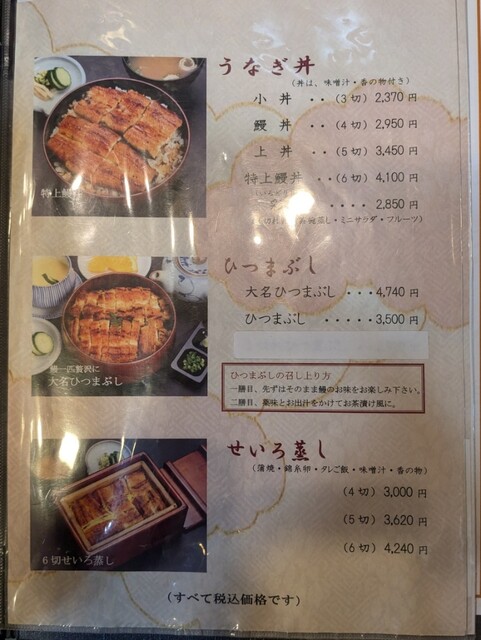 うなぎ丼
(丼は、味噌汁・香の物付き)
小丼 ・・(3切) 2,370円
鰻丼 ・・(4切) 2,950円
上丼 ・・(5切) 3,450円
特上鰻丼 ・・(6切) 4,100円
・・・・ 2,850円
蒸し・ミニサラダ・フルーツ)
特上鰻
ひつまぶし
大名ひつまぶし ・・・4,740円
ひつまぶし ・・・・・3,500円
鰻一匹贅沢に
大名ひつまぶし
ひつまぶしの召し上り方
一膳目、先ずはそのまま鰻のお味をお楽しみ下さい。
二膳目、薬味とお出汁をかけてお茶漬け風に。
せいろ蒸し
(蒲焼・錦糸卵・タレご飯・味噌汁・香の物)
(4切) 3,000円
(5切) 3,620円
(6切) 4,240円
6切せいろ蒸し
(すべて税込価格です)